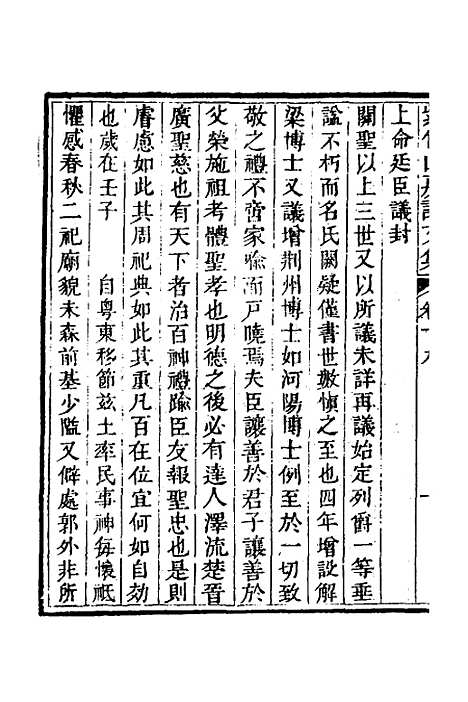 上命廷臣議封
關聖以上三世又以所議未詳再議始定列爵一等垂
諭不朽而名氏闕疑僅書世數慎之至也四年增設解
梁博士又議增荆州博士如河陽博士例至於一切致
敬之禮不啻家喻而戸曉焉夫臣讓善於君子讓善於
父榮施祖考體聖孝也明德之後必有達人澤流楚晉
廣聖慈也有天下者治百神禮踰臣友報聖忠也是則
膚慮如此其周祀典如此其重凡百在位宜何如自効
也歲在壬子 自粤東移節兹土率民事神每懷祗
懼感春秋二祀廟貌未森前基少隘又僻處郭外非所